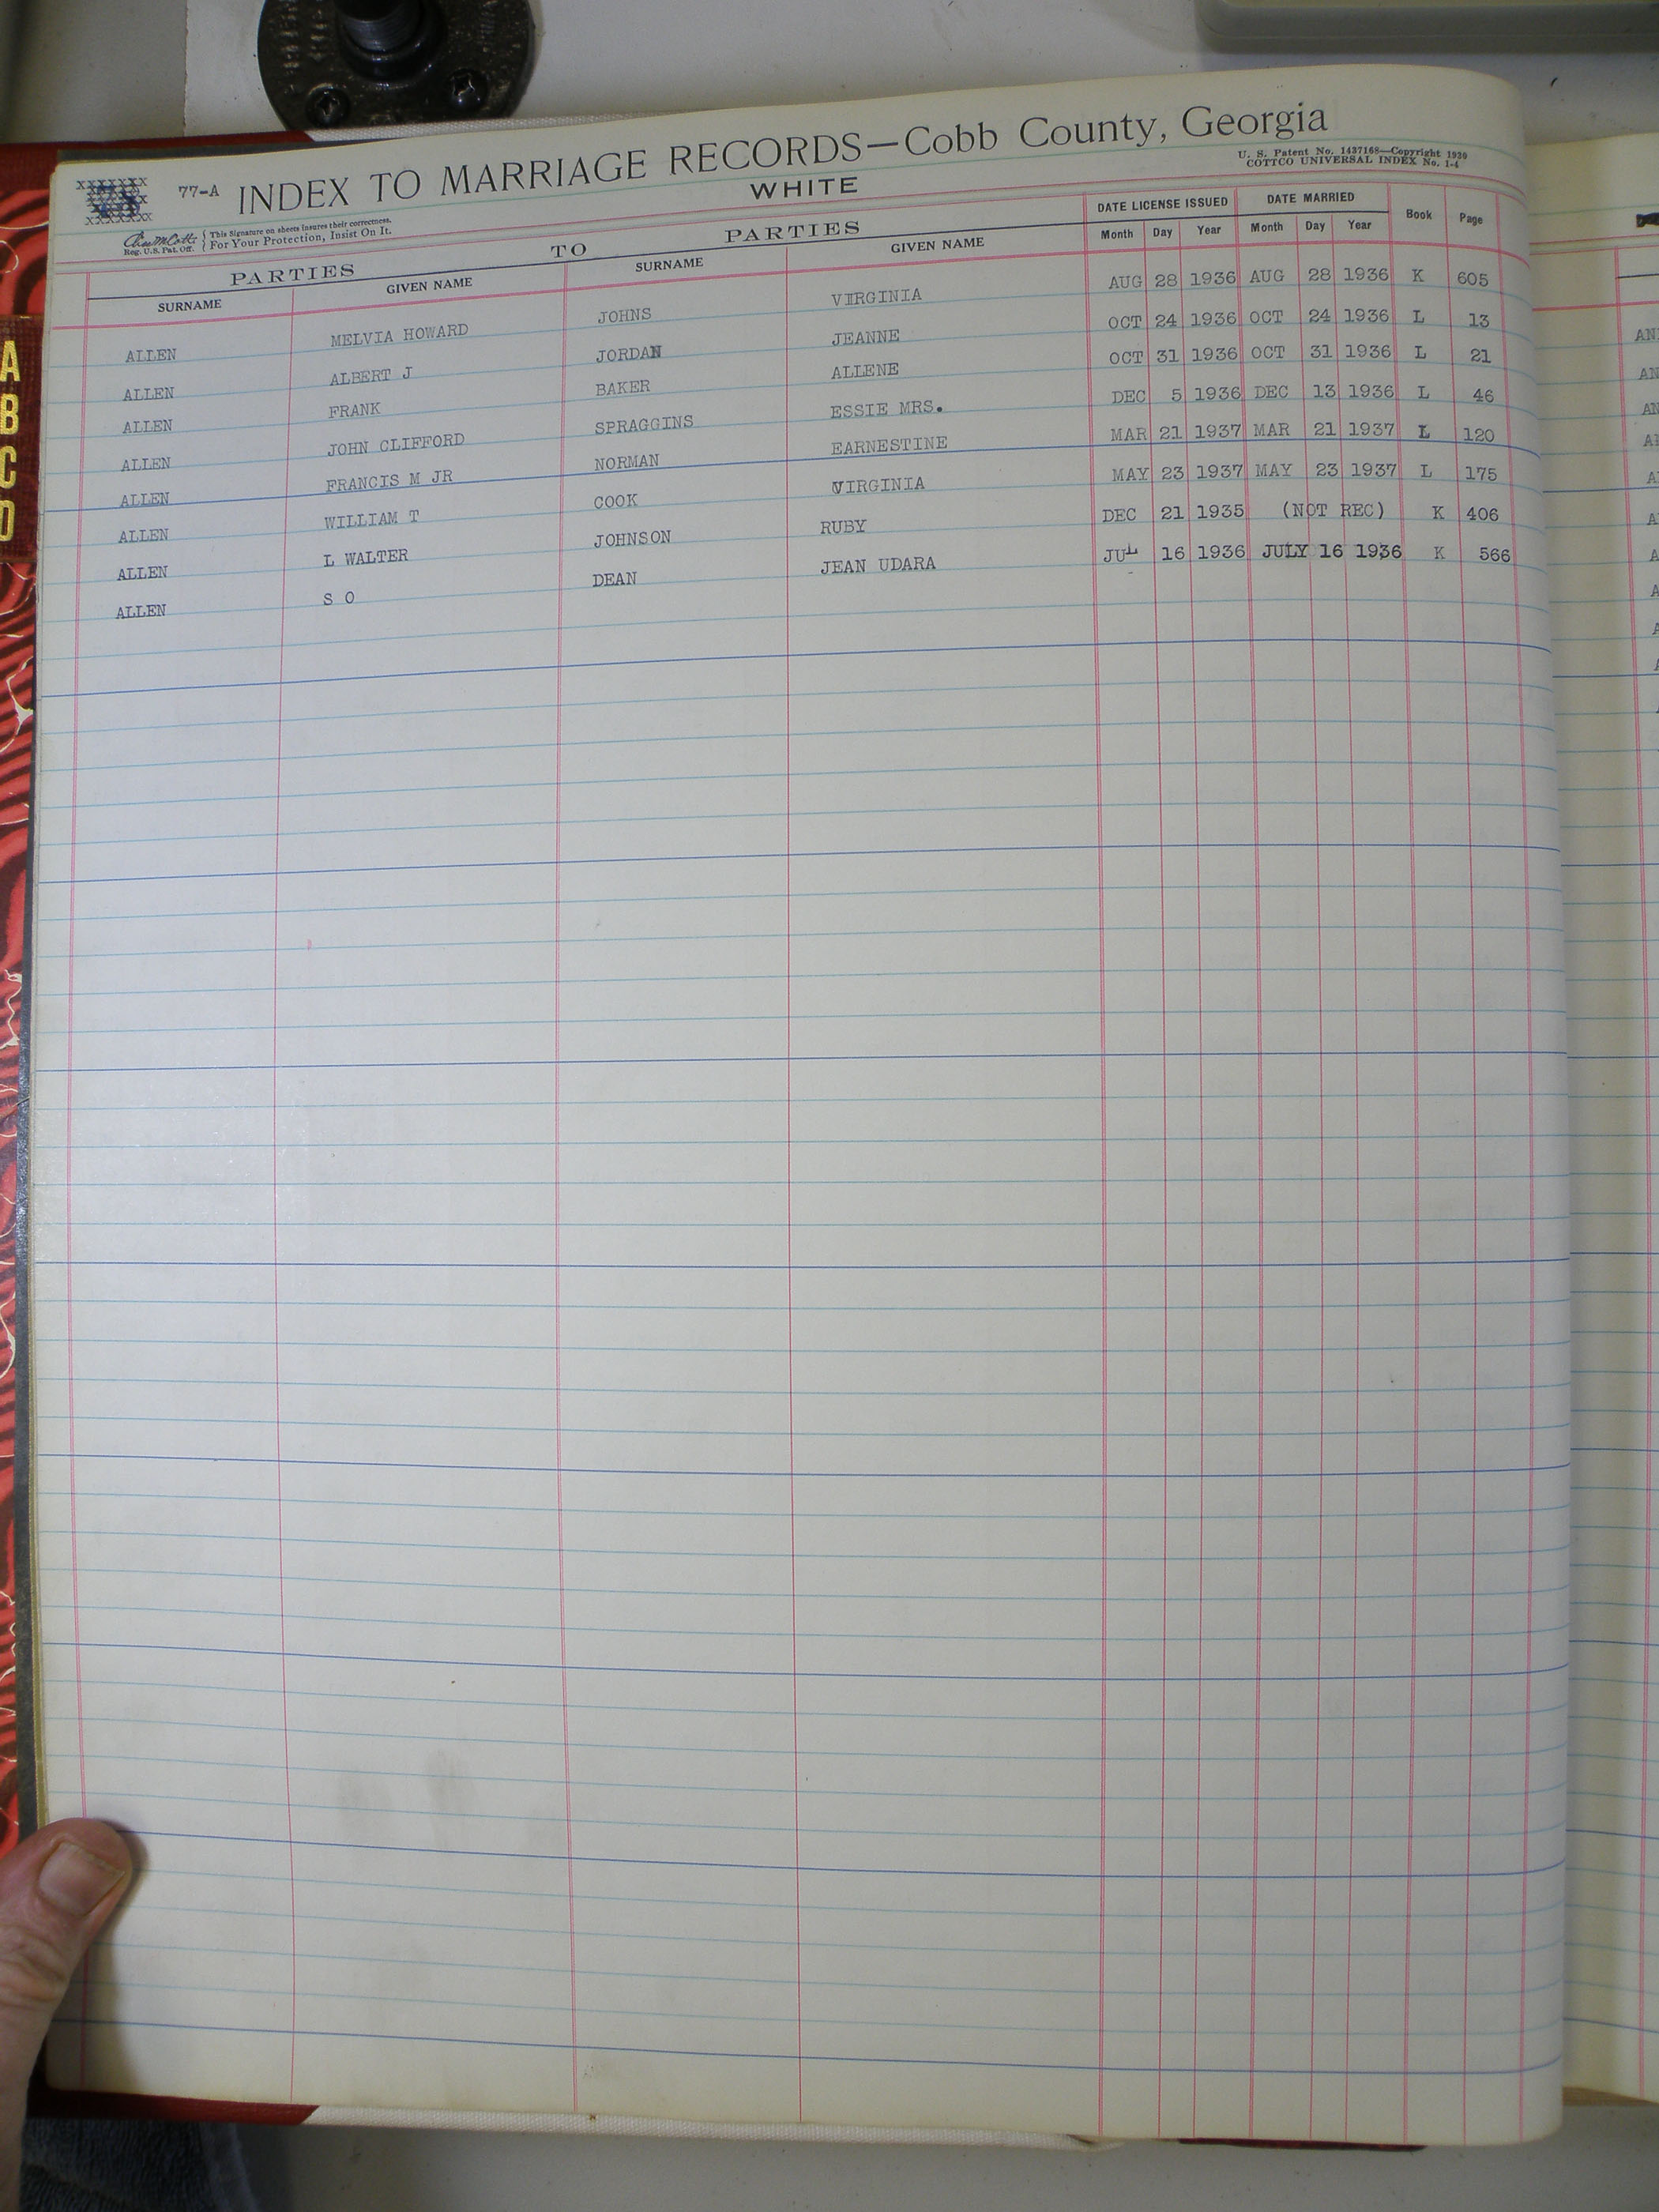 77-A INDEX TO MARRIAGE RECORDS—Cobb County, Georgia
WHITE
U. S. Patent No. 1437168—Copyright 1930
COTTCO UNIVERSAL INDEX No. 1-4
Reg. U.S. Pat. Off. This Signature on sheets insures their correctness.
For Your Protection, Insist On It.
PARTIES TO PARTIES DATE LICENSE ISSUED DATE MARRIED Book Page
SURNAME GIVEN NAME SURNAME GIVEN NAME Month Day Year Month Day Year
ALLEN MELVIA HOWARD JOHNS VIRGINIA AUG 28 1936 AUG 28 1936 K 605
ALLEN ALBERT J JORDAN JEANNE OCT 24 1936 OCT 24 1936 L 13
ALLEN FRANK BAKER ALLENE OCT 31 1936 OCT 31 1936 L 21
ALLEN JOHN CLIFFORD SPRAGGINS ESSIE MRS. DEC 5 1936 DEC 13 1936 L 46
ALLEN FRANCIS M JR NORMAN EARNESTINE MAR 21 1937 MAR 21 1937 L 120
ALLEN WILLIAM T COOK VIRGINIA MAY 23 1937 MAY 23 1937 L 175
ALLEN L WALTER JOHNSON RUBY DEC 21 1935 (NOT REC) K 406
ALLEN S O DEAN JEAN UDARA JUL 16 1936 JULY 16 1936 K 566
A
B
C
D